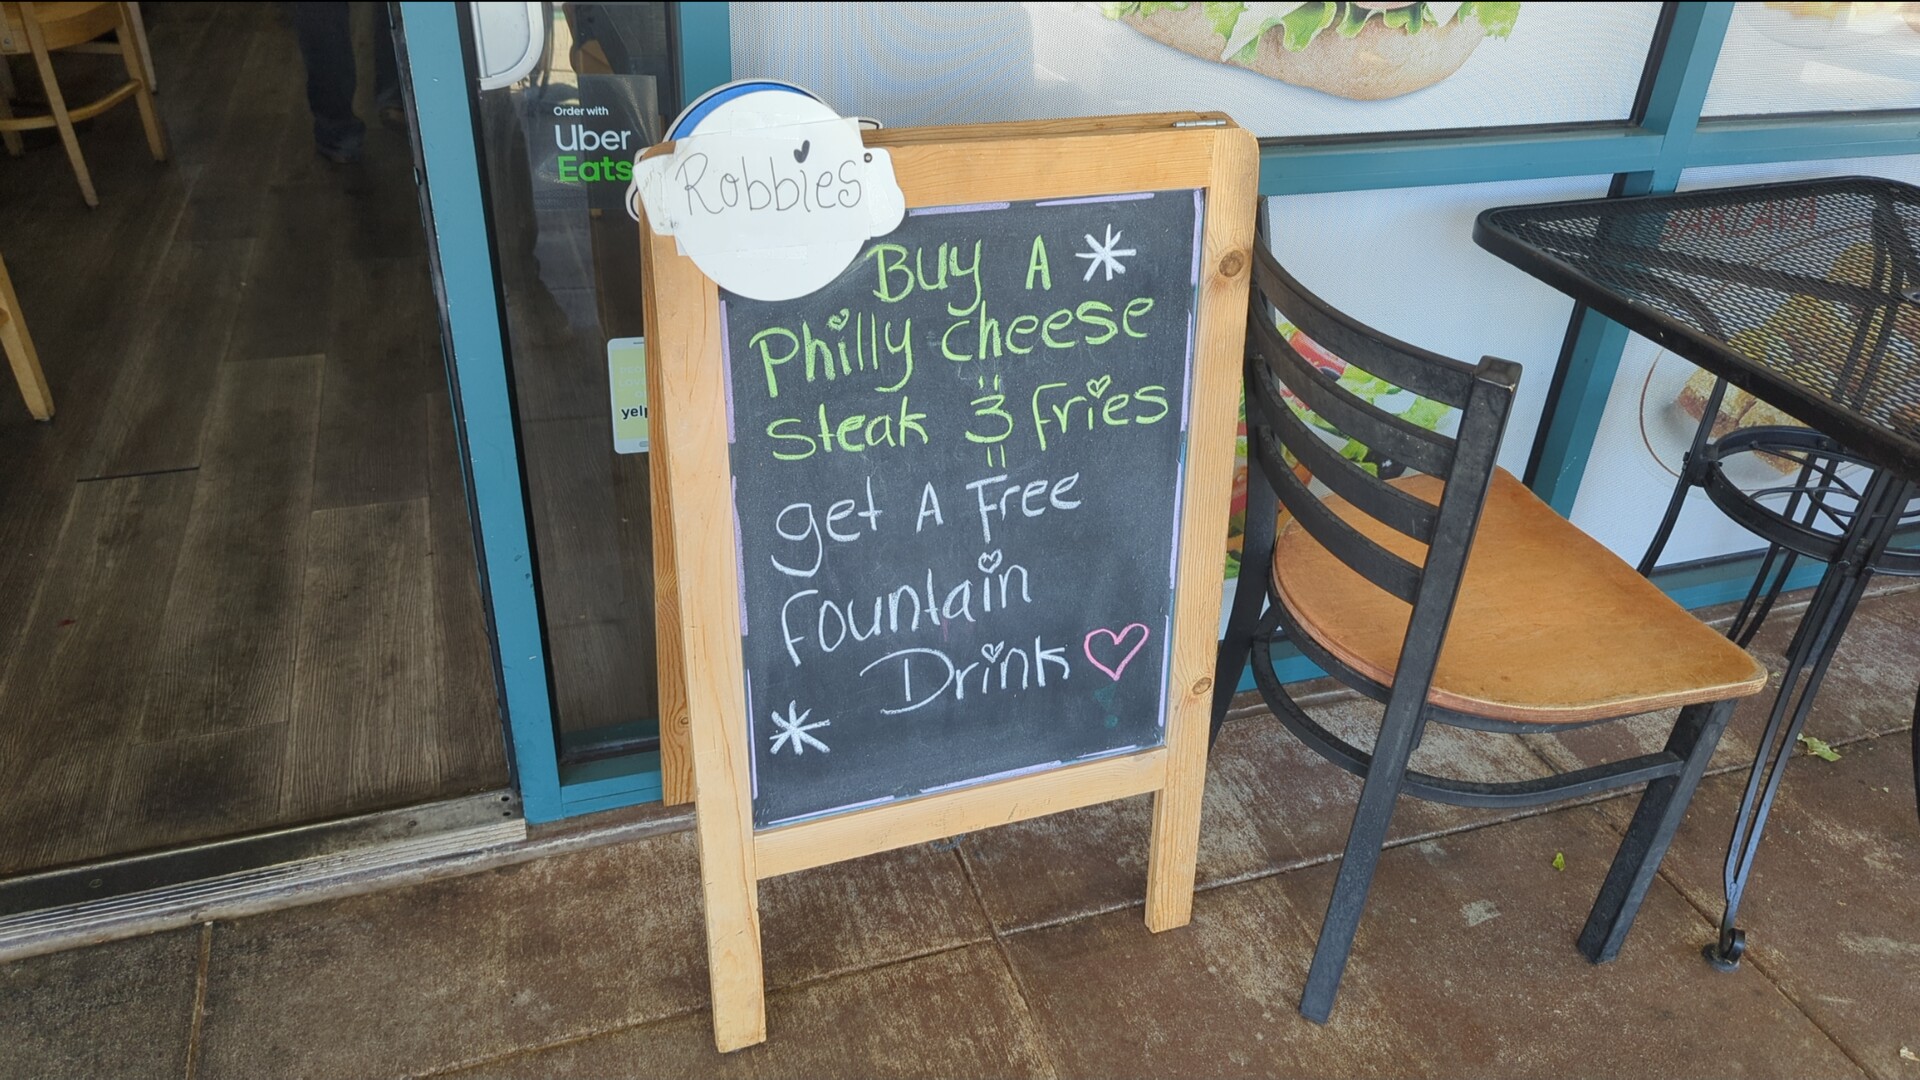 Order with
Uber
Eats
Robbies
Buy A
Philly cheese
steak & fries
get A Free
Fountain
Drink
yelp
BAKLAVA